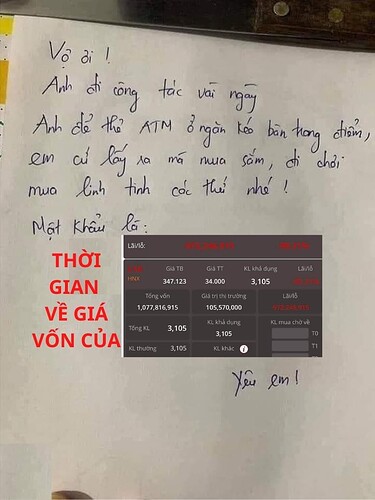 Vợ ơi !
Anh đi công tác vài ngày
Anh để thẻ ATM ở ngăn kéo bàn trang điểm,
em cứ lấy ra mà mua sắm, đi chơi
mua linh tinh các thứ nhé !
Mật khẩu là :
THỜI
GIAN
VỀ GIÁ
VỐN CỦA
Lãi/lỗ:
HNX
Giá TB Giá TT KL khả dụng Lãi/lỗ
347.123 34.000 3,105
Tổng vốn Giá trị thị trường Lãi/lỗ
1,077,816,915 105,570,000
Tổng KL 3,105 KL khả dụng 3,105 KL mua chờ về
T0
KL thường 3,105 KL khác T1
Yêu em !